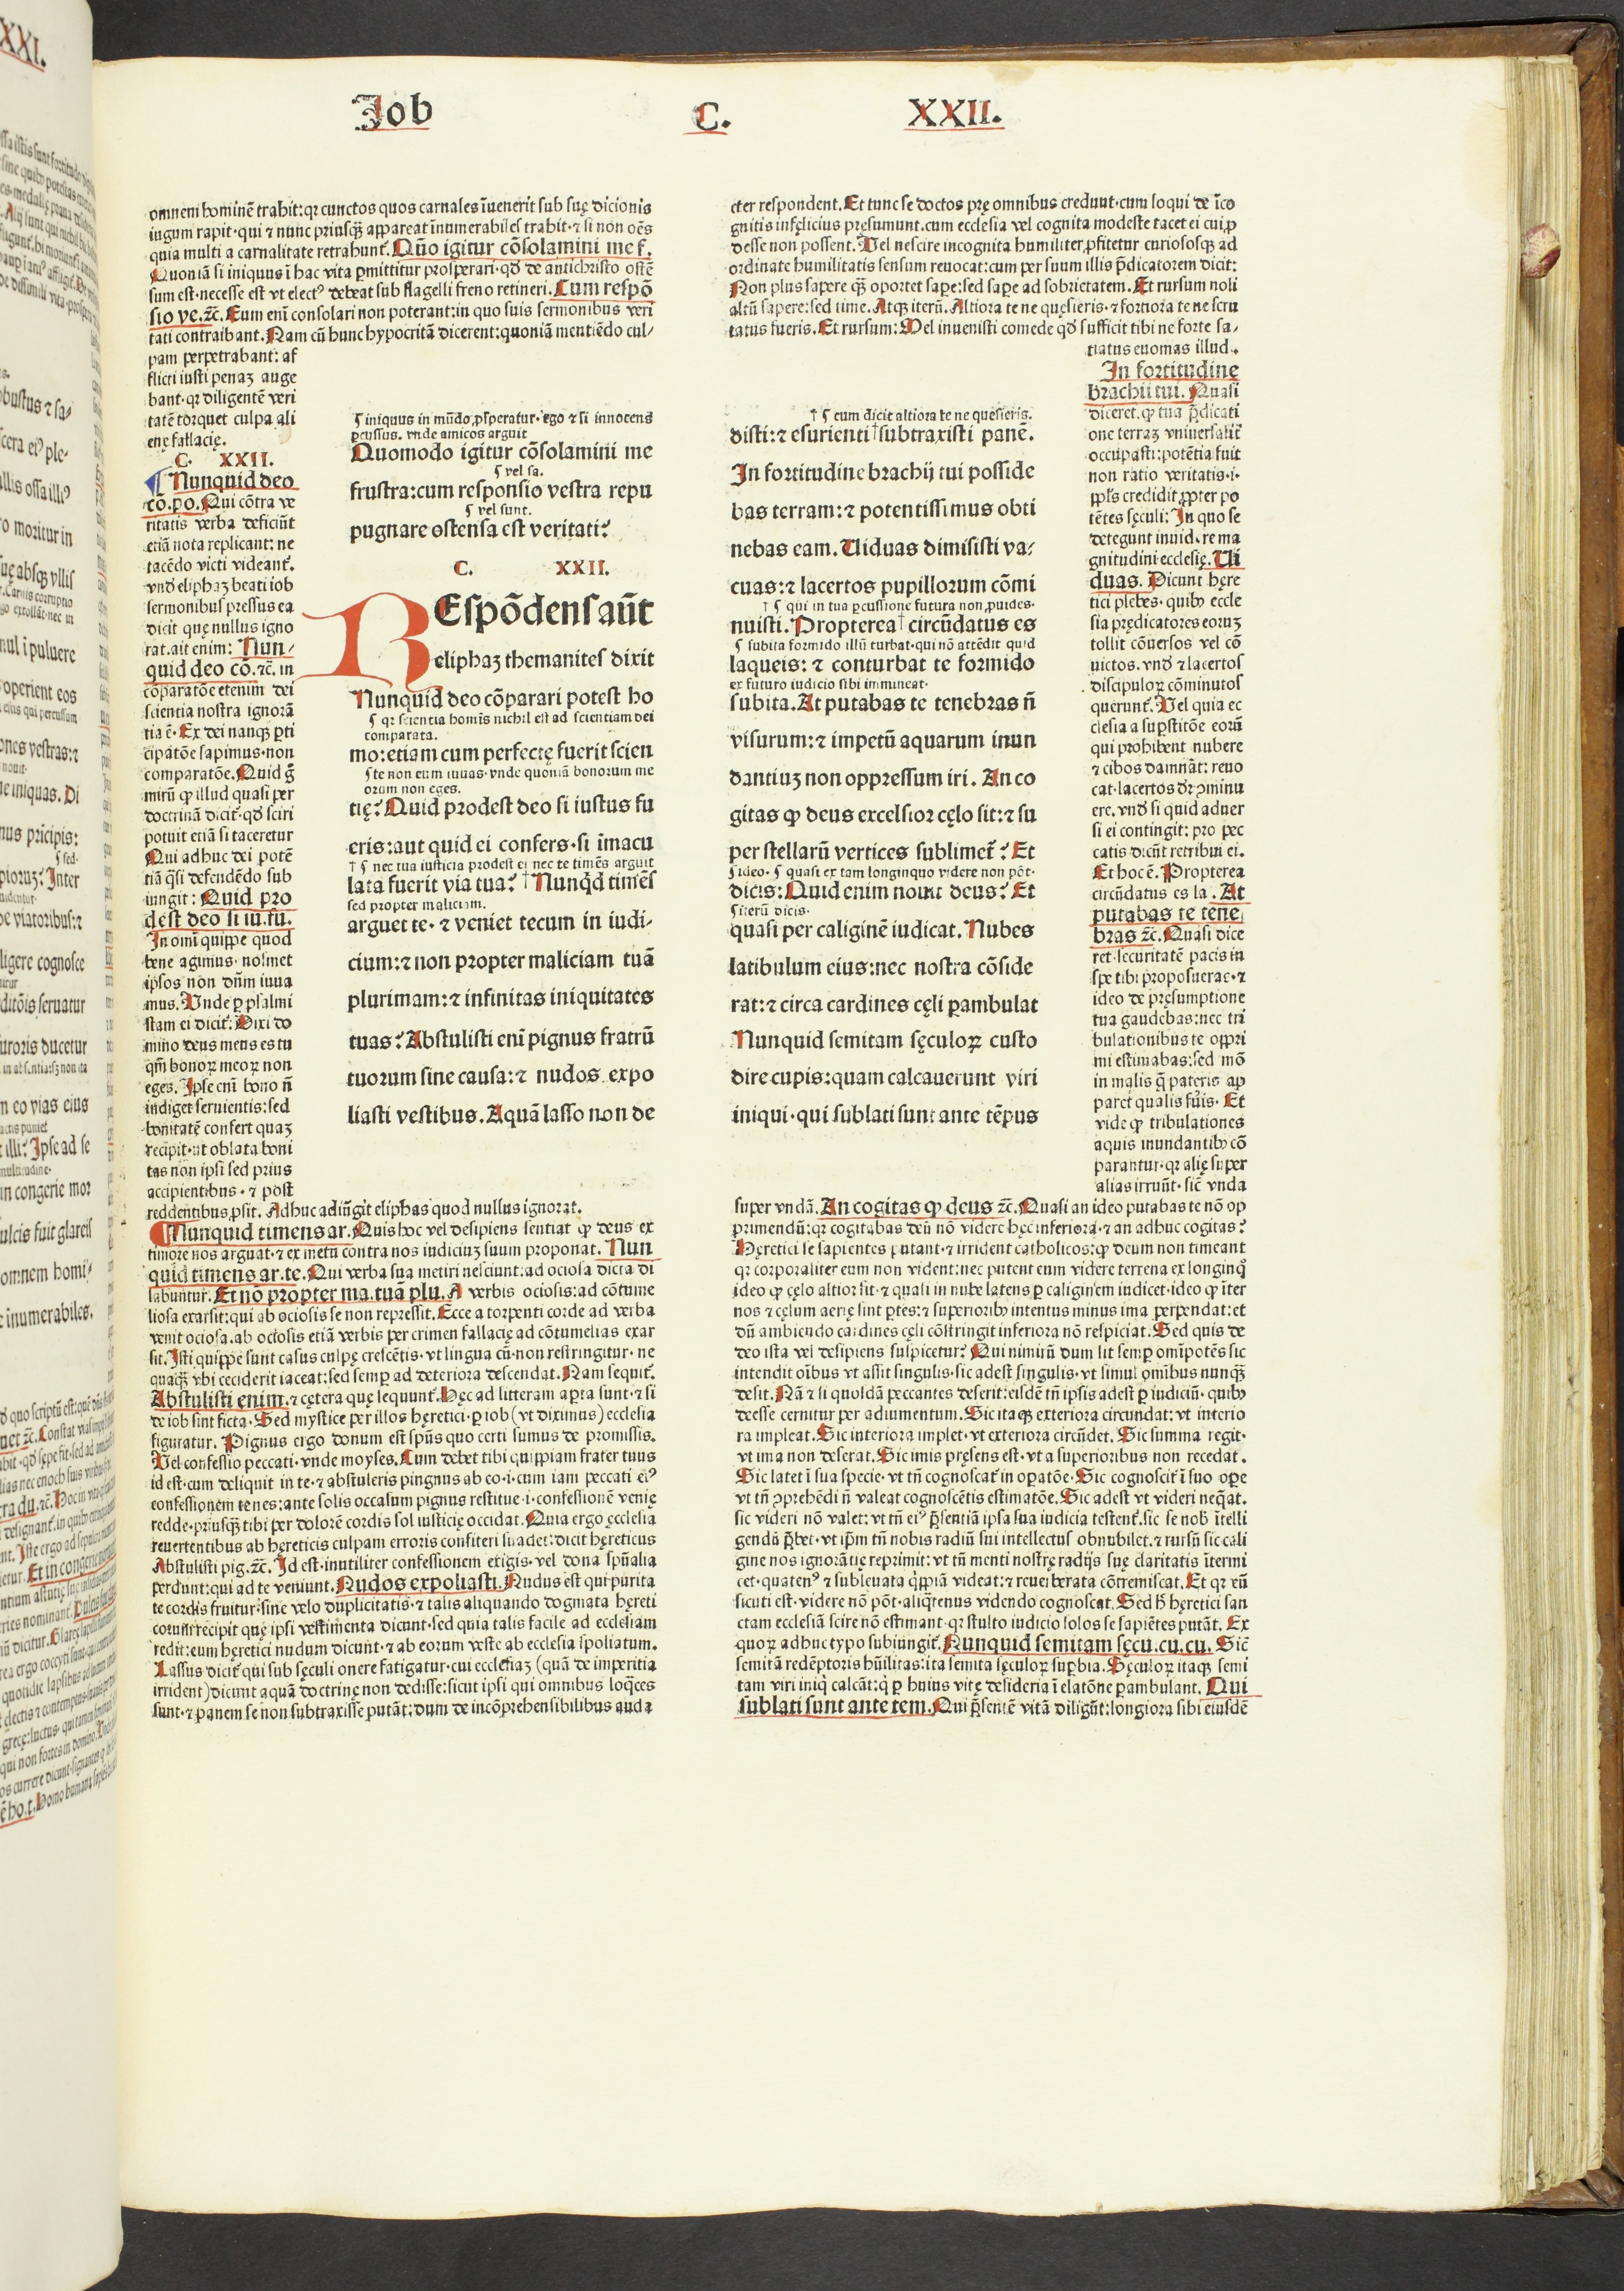 Job C. XXII.
omnem hominē trahit: qꝛ cunctos quos carnales īuenerit sub suę dicionis
iugum rapit · qui ⁊ nunc priusqꝫ appareat īnumerabiles trahit · ⁊ si non oēs
quia multi a carnalitate retrahunt̄. Quō igitur cōsolamini me f.
Quoniā si iniquus ī hac vita ꝑmittitur prosperari · qđ de antichristo ostē
sum est · necesse est vt electꝰ debeat sub flagelli freno retineri. Cum respō
sio ve. ⁊c̄. Eum enī consolari non poterant: in quo suis sermonibus veri
tati contraibant. Nam cū hunc hypocritā dicerent: quoniā mentiēdo cul/
pam perpetrabant: af
flicti iusti penaꝫ auge
bant · qꝛ diligentē veri
tatē torquet culpa ali
enę fallacię.
C. XXII.
Nunquid deo
cō. po. Qui cōtra ve
ritatis verba deficiūt
etiā nota replicant: ne
tacēdo victi videant̄.
vnđ eliphaꝫ beati iob
sermonibus pressus ea
dicit quę nullus igno
rat. ait enim: Nun/
quid deo cō. ⁊c̄. in
cōparatōe etenim dei
scientia nostra ignorā
tia ē · Ex dei nanqꝫ ꝑti
cipatōe sapimus · non
comparatōe. Quid g̊
mirū ꝙ illud quasi per
doctrinā dicit̄ · qđ sciri
potuit etiā si taceretur
Qui adhuc dei potē
tiā q̄si defendēdo sub
iungit: Quid pro
dest deo si iu. fu.
In omī quippe quod
bene agimus · nosmet
ipsos non dn̄m iuua
mus. Vnde ꝑ psalmi
stam ei dicit̄: Dixi do
mino deus meus es tu
qm̄ bonoꝝ meoꝝ non
eges. Ipse enī bono ñ
indiget seruientis: sed
bonitatē confert quaꝫ
recipit · vt oblata boni
tas non ipsi sed prius
accipientibus · ⁊ post
reddentibus ꝓsit. Adhuc adiūgit eliphas quod nullus ignorat.
Nunquid timens ar. Quis hoc vel desipiens sentiat ꝙ deus ex
timore nos arguat · ⁊ ex metu contra nos iudiciuꝫ suum proponat. Nun
quid timens ar. te. Qui verba sua metiri nesciunt: ad ociosa dicta di
labuntur. Et nō propter ma. tuā plu. A verbis ociosis: ad cōtume
liosa exarsit: qui ab ociosis se non repressit. Ecce a torpenti corde ad verba
venit ociosa. ab ociosis etiā verbis per crimen fallacię ad cōtumelias exar
sit. Isti quippe sunt casus culpę crescētis · vt lingua cū · non restringitur · ne
quaqꝫ vbi ceciderit iaceat: sed semꝑ ad deteriora descendat. Nam sequit̄.
Abstulisti enim. ⁊ cętera quę sequunt̄. Hęc ad litteram aꝑta sunt · ⁊ si
de iob sint ficta · Sed mystice per illos hęretici · ꝑ iob (vt diximus) ecclesia
figuratur. Pignus ergo donum est spūs quo certi sumus de promissis.
Vel confessio peccati · vnde moyses. Cum debet tibi quippiam frater tuus
id est · cum deliquit in te · ⁊ abstuleris pingnus ab eo · i · cum iam peccati eiꝰ
confessionem tenes: ante solis occasum pignus restitue · i · confessionē venię
redde · priusqꝫ tibi per dolorē cordis sol iusticię occidat. Quia ergo ęcclesia
reuertentibus ab hęreticis culpam erroris confiteri suadet: dicit hęreticus
Abstulisti pig. ⁊c̄. Id est · inutiliter confessionem exigis · vel dona spūalia
perdunt: qui ad te veniunt. Nudos expoliasti. Nudus est qui purita
te cordis fruitur: sine velo duplicitatis · ⁊ talis aliquando dogmata hęreti
corum recipit quę ipsi vestimenta dicunt · sed quia talis facile ad ecclesiam
redit: eum hęretici nudum dicunt · ⁊ ab eorum veste ab ecclesia spoliatum.
Lassus dicit̄ qui sub sęculi onere fatigatur · cui ecclesiaꝫ (quā de imperitia
irrident) dicunt aquā doctrinę non dedisse: sicut ipsi qui omnibus loq̄ces
sunt · ⁊ panem se non subtraxisse putāt: dum de incōprehensibilibus auda
¶ iniquus in mūdo ꝓsperatur · ego ⁊ si innocens
ꝑcussus. vnde amicos arguit
Quomodo igitur cōsolamini me
¶ vel sa.
frustra: cum responsio vestra repu
¶ vel sunt.
pugnare ostensa est veritati?
C. XXII.
REspōdens aūt
eliphaꝫ themanites dixit
Nunquid deo cōparari potest ho
¶ qꝛ scientia homīs nichil est ad scientiam dei
comparata.
mo: etiam cum perfectę fuerit scien
¶ te non eum iuuas · vnde quoniā bonorum me
orum non eges.
tię? Quid prodest deo si iustus fu
eris: aut quid ei confers · si īmacu
† ¶ nec tua iusticia prodest ei nec te timēs arguit
lata fuerit via tua? † Nunqđ timēs
sed propter maliciam.
arguet te · ⁊ veniet tecum in iudi/
cium: ⁊ non propter maliciam tuā
plurimam: ⁊ infinitas iniquitates
tuas? Abstulisti enī pignus fratrū
tuorum sine causa: ⁊ nudos expo
liasti vestibus. Aquā lasso non de
cter respondent. Et tunc se doctos pre omnibus credunt · cum loqui de īco
gnitis infęlicius pręsumunt. cum ecclesia vel cognita modeste tacet ei cui ꝓ
desse non possent. Vel nescire incognita humiliter ꝓfitetur curiososqꝫ ad
ordinate humilitatis sensum reuocat: cum per suum illis p̄dicatorem dicit:
Non plus sapere qꝫ oportet sapere: sed sape ad sobrietatem. Et rursum noli
altū sapere: sed time. Atqꝫ iterū. Altiora te ne quęsieris · ⁊ fortiora te ne scru
tatus fueris. Et rursum: Mel inuenisti comede qđ sufficit tibi ne forte sa/
tiatus euomas illud.
† ¶ cum dicit altiora te ne quesieris.
disti: ⁊ esurienti † subtraxisti panē.
In fortitudine brachij tui posside
bas terram: ⁊ potentissimus obti
nebas eam. Viduas dimisisti va/
cuas: ⁊ lacertos pupillorum cōmi
† ¶ qui in tua ꝑcussione futura non ꝓuides.
nuisti. Propterea † circūdatus es
¶ subita formido illū turbat · qui nō attēdit quid
laqueis: ⁊ conturbat te formido
ex futuro iudicio sibi immineat.
subita. At putabas te tenebras ñ
visurum: ⁊ impetū aquarum inun
dantiuꝫ non oppressum iri. An co
gitas ꝙ deus excelsior cęlo sit: ⁊ su
per stellarū vertices sublimet̄? Et
¶ ideo · ¶ quasi ex tam longinquo videre non pōt ·
dicis: Quid enim nouit deus? Et
¶ iterū dicis ·
quasi per caliginē iudicat. Nubes
latibulum eius: nec nostra cōside
rat: ⁊ circa cardines cęli ꝑambulat
Nunquid semitam sęculoꝝ custo
dire cupis: quam calcauerunt viri
iniqui · qui sublati sunt ante tēpus
In fortitudine
brachii tui. Quasi
diceret. ꝙ tua p̄dicati
one terraꝫ vniuersalit̄
occupasti: potētia fuit
non ratio veritatis · i ·
ppl̄s credidit ꝓpter po
tētes sęculi: In quo se
detegunt inuid. re ma
gnitudini ecclesię. Vi
duas. Dicunt hęre
tici plebes · quibꝫ eccle
sia prędicatores eoruꝫ
tollit cōuersos vel cō
uictos. vnđ ⁊ lacertos
discipuloꝝ cōminutos
querunt̄. Vel quia ec
clesia a suꝑstitōe eorū
qui prohibent nubere
⁊ cibos damnāt: reuo
cat · lacertos dr̄ ꝯminu
ere. vnđ si quid aduer
si ei contingit: pro pec
catis dicūt retribui ei.
Et hoc ē. Propterea
circūdatus es la. At
putabas te tene
bras ⁊c̄. Quasi dice
ret · securitatē pacis in
spe tibi proposueras · ⁊
ideo de pręsumptione
tua gaudebas: nec tri
bulationibus te oppri
mi estimabas: sed mō
in malis q̄ pateris ap
paret qualis fūis. Et
vide ꝙ tribulationes
aquis inundantibꝫ cō
parantur · qꝛ alię super
alias irruūt · sic̄ vnda
super vndā. An cogitas ꝙ deus ⁊c̄. Quasi an ideo putabas te nō op
primendū: qꝛ cogitabas deū nō videre hęc inferiora · ⁊ an adhuc cogitas?
Hęretici se sapientes putant · ⁊ irrident catholicos: ꝙ deum non timeant
qꝛ corporaliter eum non vident: nec putent eum videre terrena ex longinq̊
ideo ꝙ cęlo altior sit · ⁊ quasi in nube latens ꝑ caliginem iudicet · ideo ꝙ īter
nos ⁊ cęlum aerię sint ꝑtes: ⁊ superioribꝫ intentus minus ima ꝑpendat: et
dū ambiendo cardines cęli cōstringit inferiora nō respiciat. Sed quis de
deo ista vel desipiens suspicetur? Qui nimirū dum sit semꝑ omīpotēs sic
intendit oībus vt assit singulis · sic adest singulis · vt simul omibus nunqꝫ
desit. Nā ⁊ si quosdā peccantes deserit: eisdē tn̄ ipsis adest ꝑ iudiciū · quibꝫ
deesse cernitur per adiumentum. Sic itaqꝫ exteriora circundat: vt interio
ra impleat. Sic interiora implet · vt exteriora circūdet. Sic summa regit ·
vt ima non deserat. Sic imis pręsens est · vt a superioribus non recedat.
Sic latet ī sua specie · vt tn̄ cognoscat̄ in oꝑatōe · Sic cognoscit̄ ī suo oꝑe
vt tn̄ ꝯprehēdi ñ valeat cognoscētis estimatōe. Sic adest vt videri neq̄at.
sic videri nō valet: vt tn̄ eiꝰ p̄sentiā ipsa sua iudicia testent̄. sic se nob̄ ītelli
gendū p̄bet · vt ip̄m tn̄ nobis radiū sui intellectus obnubilet · ⁊ rursū sic cali
gine nos ignorātię reprimit: vt tn̄ menti nostrę radijs suę claritatis ītermi
cet · quatenꝰ ⁊ subleuata q̄ppiā videat: ⁊ reuerberata cōtremiscat. Et qꝛ eū
sicuti est · videre nō pōt · aliq̄tenus videndo cognoscat. Sed h̄ hęretici san
ctam ecclesiā scire nō estimant · qꝛ stulto iudicio solos se sapiētes putāt. Ex
quoꝝ adhuc typo subiungit̄. Nunquid semitam sęcu. cu. cu. Sic̄
semitā redēptoris hūilitas: ita semita sęculoꝝ suꝑbia. Sęculoꝝ itaqꝫ semi
tam viri iniq̄ calcāt: q̄ ꝑ huius vitę desideria ī elatōne ꝑambulant. Qui
sublati sunt ante tem. Qui p̄sentē vitā diligūt: longiora sibi eiusdē